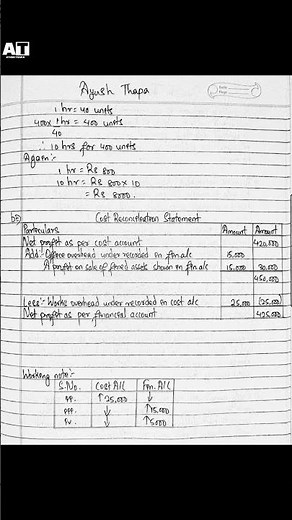 AT
Ayush Thapa
1 hr = 40 units
400 x 1 hr = 400 units
40
∴ 10 hrs for 400 units
Again:-
1 hr = Rs 800
10 hr = Rs 800 x 10
= Rs 8000.
Cost Reconciliation Statement
Particulars Amount Amount
Net profit as per cost account 420,000
Add:- Office overhead under recorded in fin a/c 15,000
profit on sale of fixed assets shown in fin a/c 15,000 30,000
450,000
Less:- Works overhead under recorded in cost a/c 25,000 (25,000)
Net profit as per financial account 425,000
Working note:-
S.No. Cost A/c Fin. A/c
↑25,000 ↓
↓ ↑15,000
↓ ↑5000